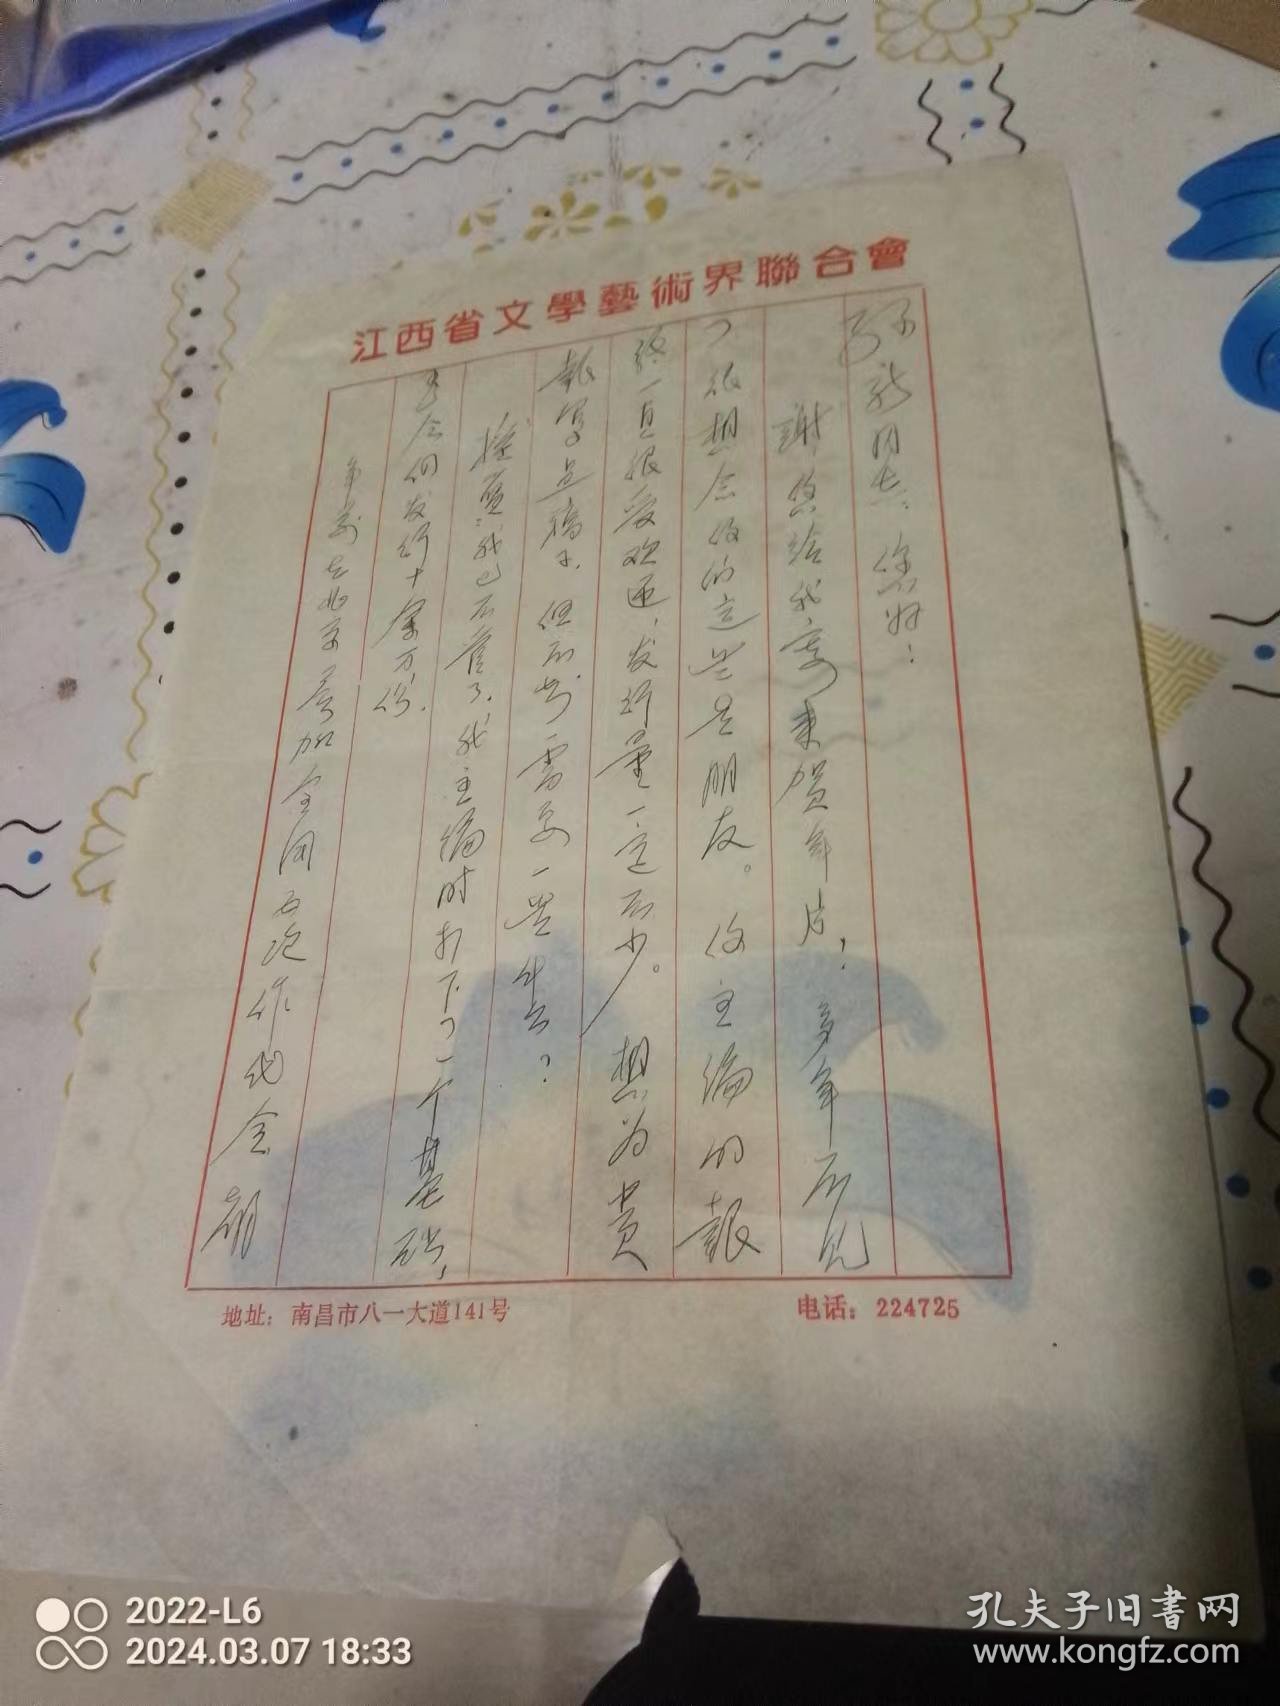 江西省文學藝術界聯合會
同志：您好！
謝您给我寄来贺年片！多年不见
了，很想念你的这些老朋友。你主编的報
终一直很受欢迎，发行量一定不少。想为贵
報写点稿子，但不知需要一些什么？
我已不管了，我主编时打下了一个基础，
至今仍发行十余万份。
年前去北京参加全国五次作代会
地址：南昌市八一大道141号
电话：224725
2022-L6
2024.03.07 18:33
孔夫子旧书网
www.kongfz.com